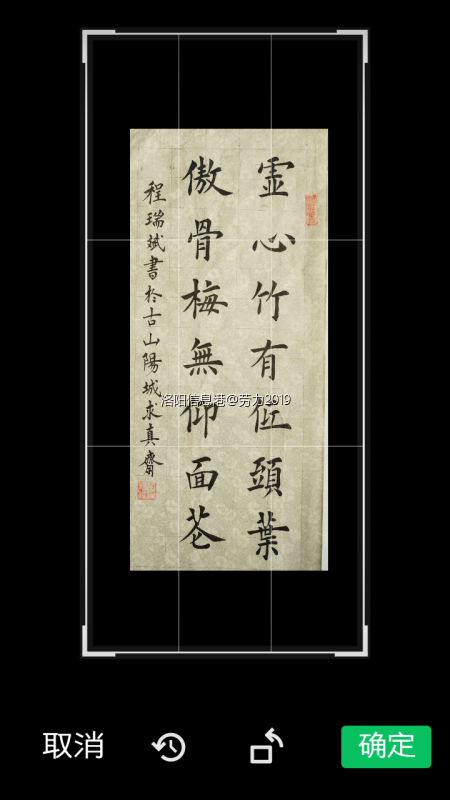 霊心竹有低頭葉
傲骨梅無仰面花
程瑞斌書於古山陽城求真齋
洛阳信息港@劳力2019
取消
确定